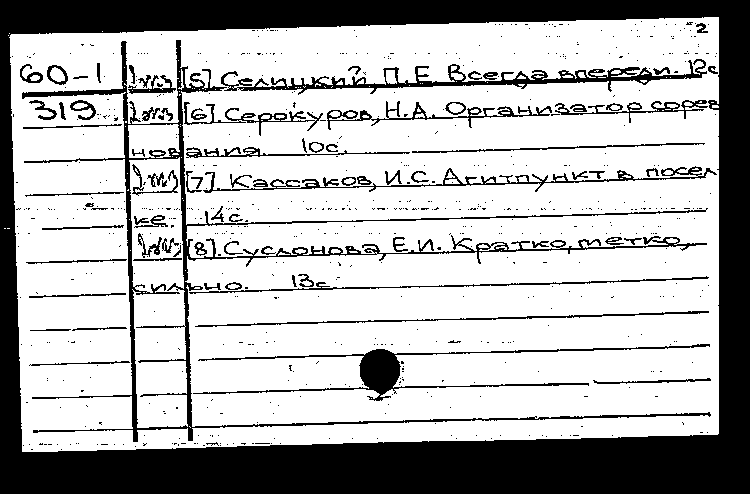 2
60-1 [5]. Селицкий, П.Е. Всегда впереди. 12с
319 [6]. Серокуров, Н.А. Организатор сорев
нования. 10с.
[7]. Кассаков, И.С. Агитпункт в посел
ке. 14с.
[8]. Суслонова, Е.И. Кратко, метко,
сильно. 13с